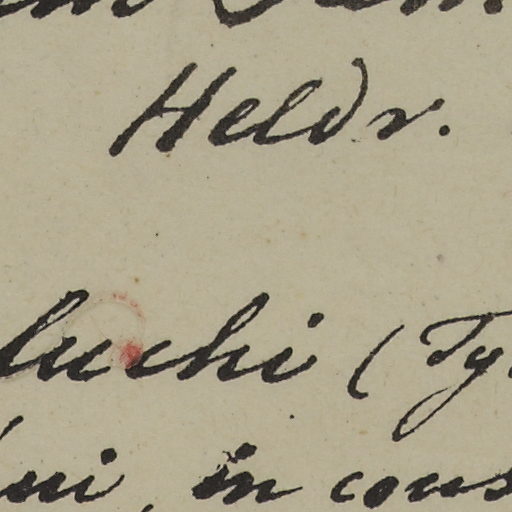 Heldr.
luchi (Ty
ui, in cons